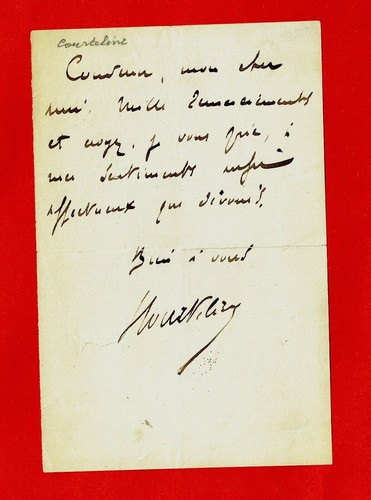 Courteline
Convenu, mon cher
ami. Mille remerciements
et croyez, je vous prie, à
mes sentiments aussi
affectueux que dévoués.
Bien à vous
GCourteline